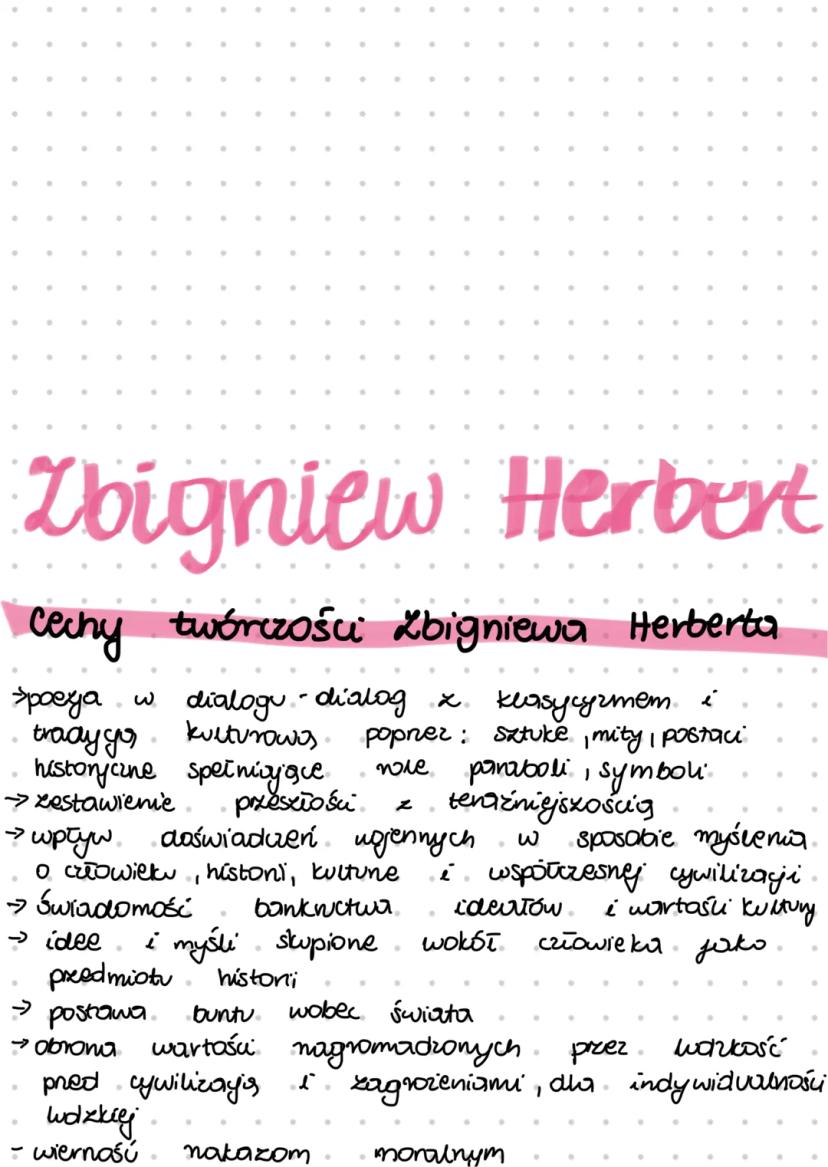 Zbigniew Herbert
Cechy twórczości Zbigniewa Herberta
→poezja w dialogu - dialog z klasycyzmem i
tradycją kulturową poprzez: sztukę, mity, postaci
historyczne spełniające role paraboli, symboli
→ zestawienie przeszłości z teraźniejszością
→ wpływ doświadczeń wojennych w sposobie myślenia
o człowieku, historii, kulturze i współczesnej cywilizacji
→ świadomość bankructwa ideałów i wartości kultury
→ idee i myśli skupione wokół człowieka jako
przedmiotu historii
→ postawa buntu wobec świata
→ obrona wartości nagromadzonych przez ludzkość
przed cywilizacją i zagrożeniami, dla indywidualności
ludzkiej
- wierność nakazom moralnym